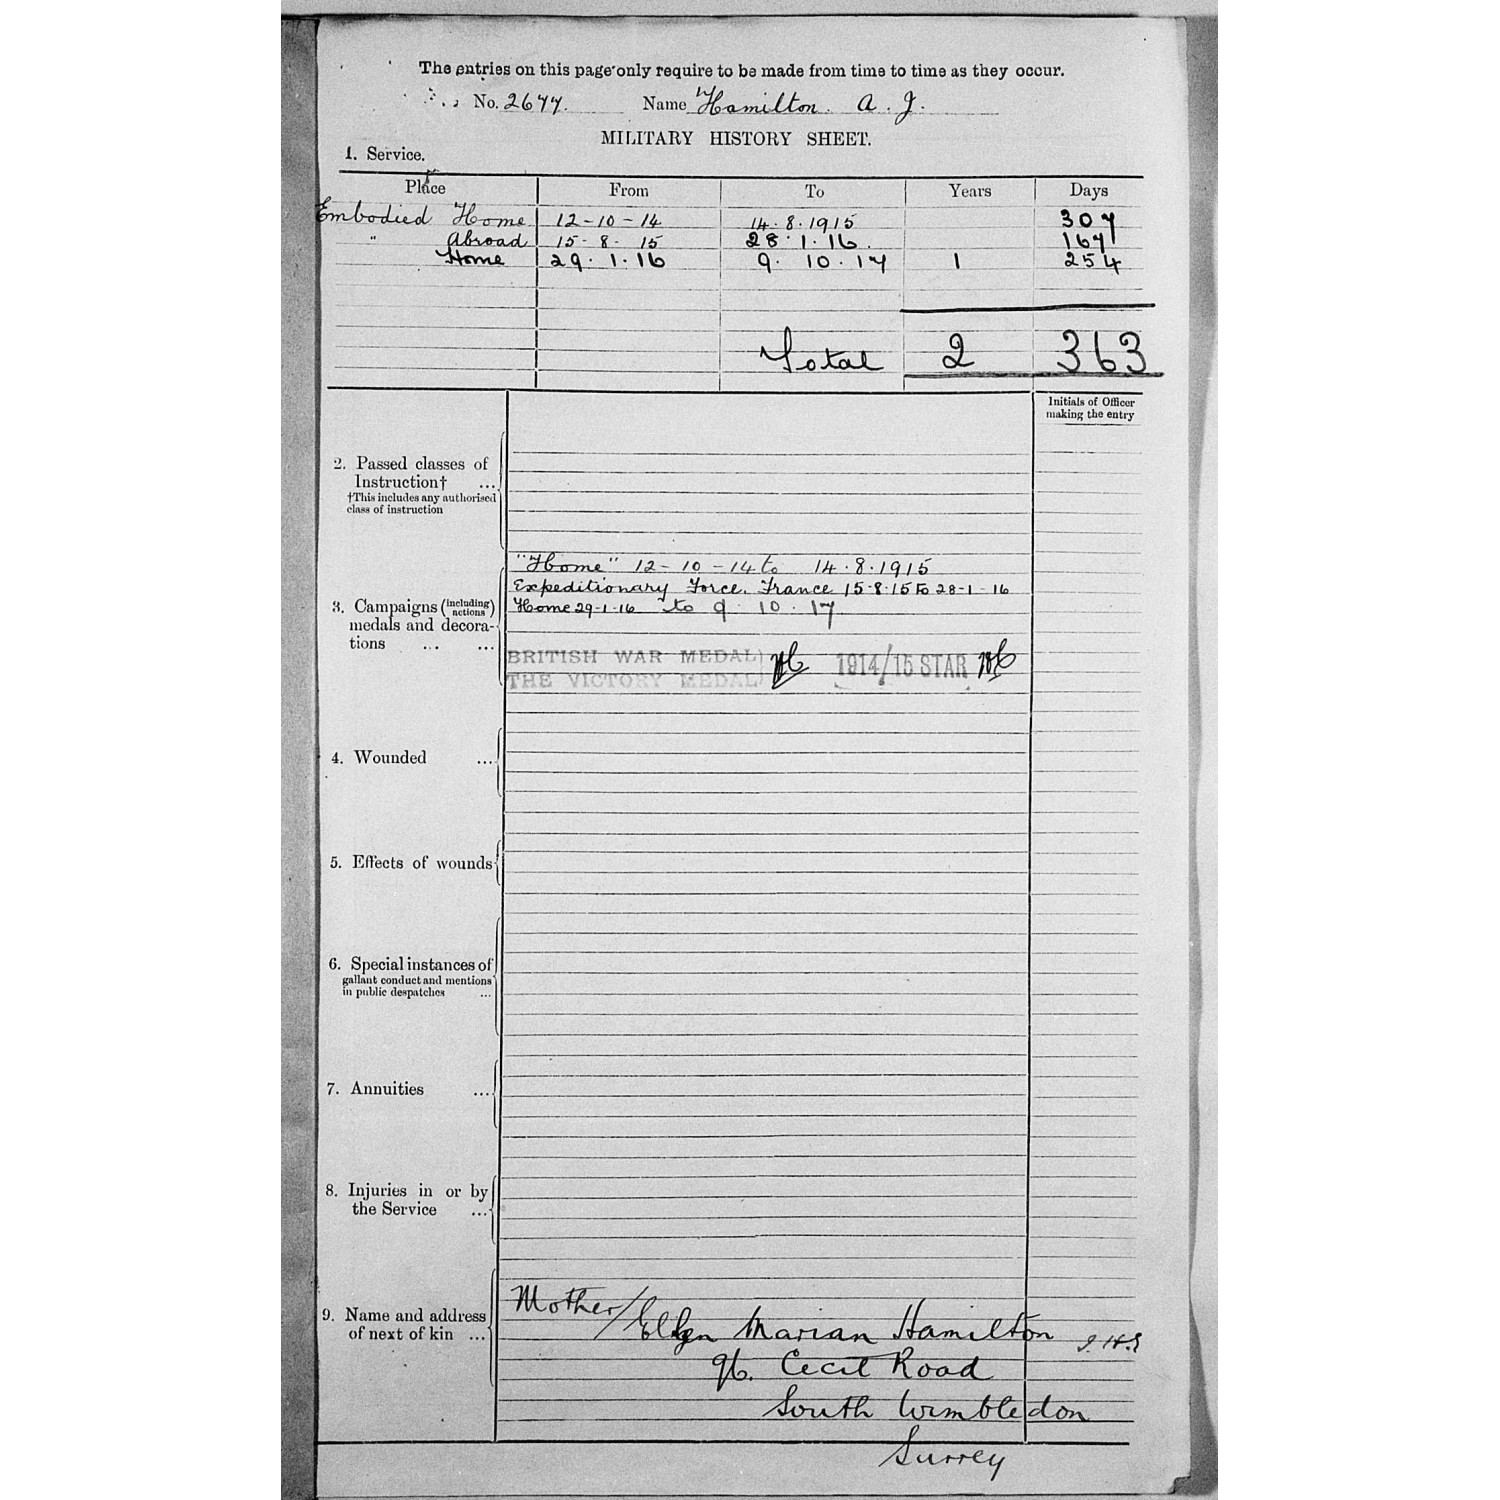 The entries on this page only require to be made from time to time as they occur.
No. 2677. Name Hamilton. A. J.
MILITARY HISTORY SHEET.
1. Service.
Place From To Years Days
Embodied Home 12-10-14 14.8.1915 307
" Abroad 15-8-15 28.1.16. 167
Home 29.1.16 9.10.17 1 254
Total 2 363
Initials of Officer
making the entry
2. Passed classes of
Instruction† ...
†This includes any authorised
class of instruction
"Home" 12-10-14 to 14.8.1915
Expeditionary Force, France 15-8-15 to 28-1-16
3. Campaigns (including actions) Home 29-1-16 to 9.10.17
medals and decora-
tions ... ...
BRITISH WAR MEDAL) 1914/15 STAR
THE VICTORY MEDAL)
4. Wounded ...
5. Effects of wounds
6. Special instances of
gallant conduct and mentions
in public despatches ...
7. Annuities ...
8. Injuries in or by
the Service ...
9. Name and address
of next of kin ...
Mother/ Marian Hamilton
96. Cecil Road
South Wimbledon
Surrey